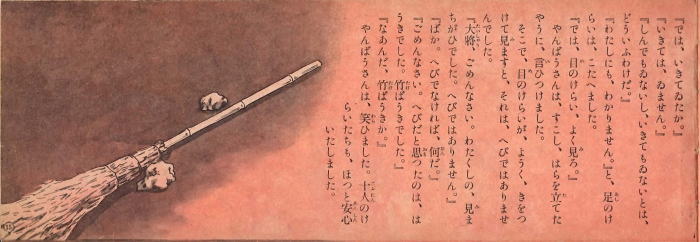 『では、いきてゐたか。』
『いきては、ゐません。』
『しんでもゐないし、いきてもゐないとは、
どういふわけだ。』
『わたしにも、わかりません。』と、足のけ
らいは、こたへました。
『では、目のけらい、よく見ろ。』
やんばうさんは、すこし、はらを立てた
やうに、言ひつけました。
そこで、目のけらいが、ようく、きをつ
けて見ますと、それは、へびではありませ
んでした。
『大將、ごめんなさい。わたくしの、見ま
ちがひでした。へびではありません。』
『ばか。へびでなければ、何だ。』
『ごめんなさい。へびだと思つたのは、は
うきでした。竹ばうきでした。』
『なあんだ、竹ばうきか。』
やんばうさんは、笑ひました。十人のけ
らいたちも、ほつと安心
いたしました。